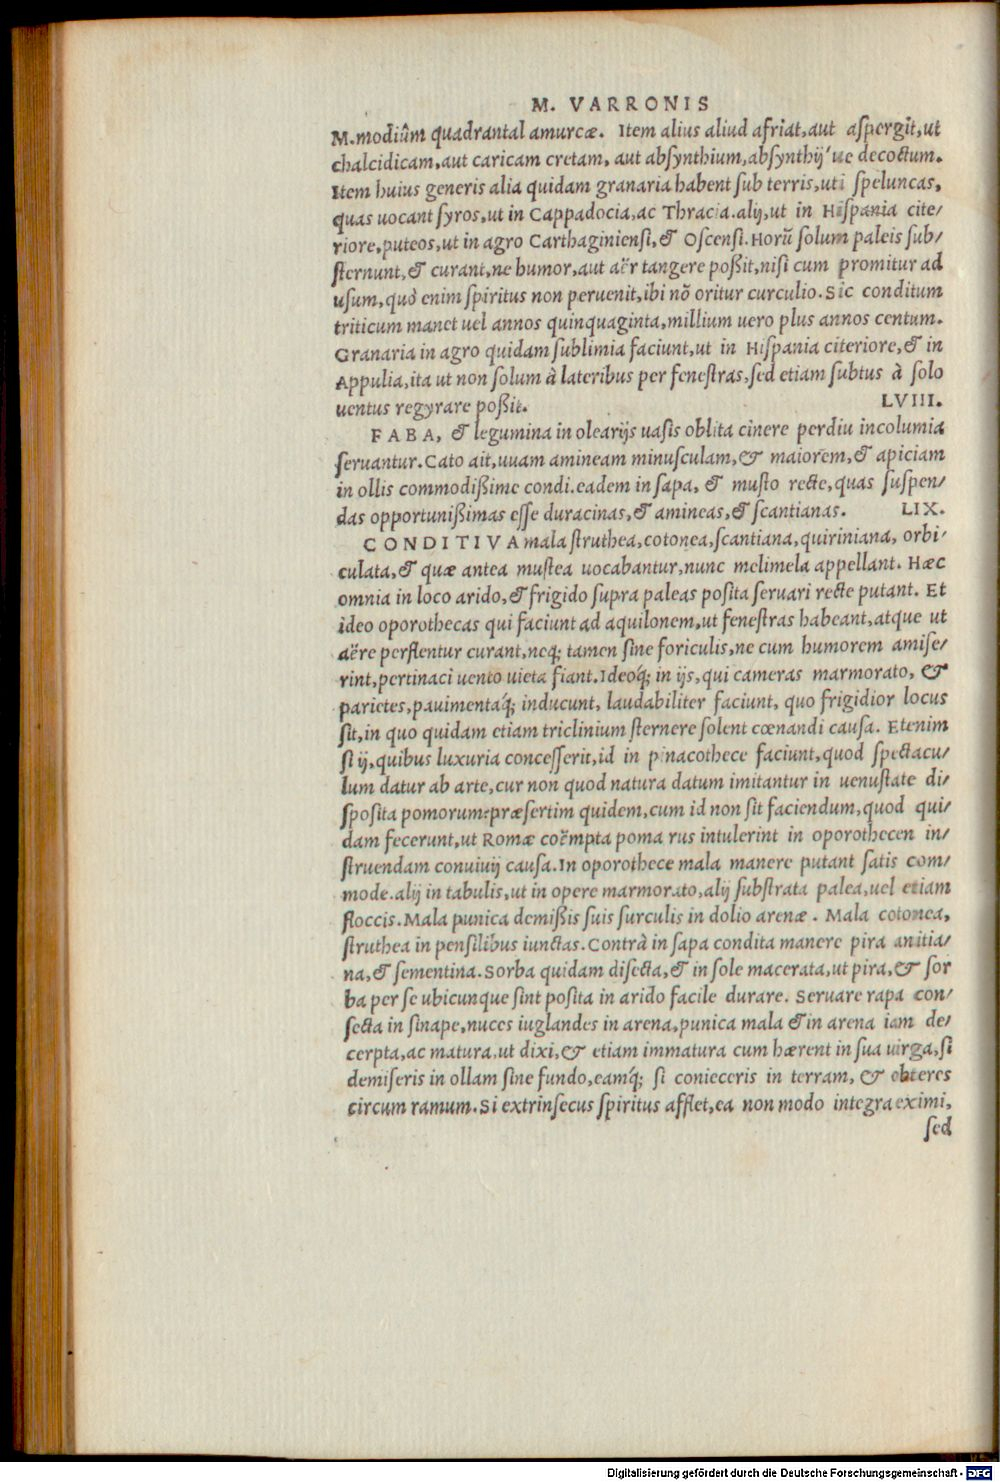 M. VARRONIS
M.modiûm quadrantal amurcæ. Item alius aliud afriat,aut aſpergit,ut
chalcidicam,aut caricam cretam, aut abſynthium,abſynthij'ue decoctum.
Item huius generis alia quidam granaria habent ſub terris,uti ſpeluncas,
quas uocant ſyros,ut in Cappadocia,ac Thracia.alij,ut in Hiſpania cite/
riore,puteos,ut in agro Carthaginienſi,& Oſcenſi.Horũ ſolum paleis ſub/
ſternunt,& curant,ne humor,aut aër tangere poßit,niſi cum promitur ad
uſum,quò enim ſpiritus non peruenit,ibi nõ oritur curculio.Sic conditum
triticum manet uel annos quinquaginta,millium uero plus annos centum.
Granaria in agro quidam ſublimia faciunt,ut in Hiſpania citeriore,& in
Appulia,ita ut non ſolum à lateribus per feneſtras,ſed etiam ſubtus à ſolo
uentus regyrare poßit. LVIII.
FABA, & legumina in olearijs uaſis oblita cinere perdiu incolumia
ſeruantur.Cato ait,uuam amineam minuſculam,& maiorem,& apiciam
in ollis commodißime condi.eadem in ſapa, & muſto recte,quas ſuſpen/
das opportunißimas eſſe duracinas,& amineas,& ſcantianas. LIX.
CONDITIVA mala ſtruthea,cotonea,ſcantiana,quiriniana, orbi/
culata,& quæ antea muſtea uocabantur,nunc melimela appellant. Hæc
omnia in loco arido,& frigido ſupra paleas poſita ſeruari recte putant. Et
ideo oporothecas qui faciunt ad aquilonem,ut feneſtras habeant,atque ut
aëre perflentur curant,neq; tamen ſine foriculis,ne cum humorem amiſe/
rint,pertinaci uento uieta fiant.Ideoq́; in ijs,qui cameras marmorato, &
parietes,pauimentaq́; inducunt, laudabiliter faciunt, quo frigidior locus
ſit,in quo quidam etiam triclinium ſternere ſolent cœnandi cauſa. Etenim
ſi ij,quibus luxuria conceſſerit,id in pinacothece faciunt,quod ſpectacu/
lum datur ab arte,cur non quod natura datum imitantur in uenuſtate di/
ſpoſita pomorum?præſertim quidem,cum id non ſit faciendum,quod qui/
dam fecerunt,ut Romæ coëmpta poma rus intulerint in oporothecen in/
ſtruendam conuiuij cauſa.In oporothece mala manere putant ſatis com/
mode.alij in tabulis,ut in opere marmorato,alij ſubſtrata palea,uel etiam
floccis.Mala punica demißis ſuis ſurculis in dolio arenæ . Mala cotonea,
ſtruthea in penſilibus iunctas.Contrà in ſapa condita manere pira anitia/
na,& ſementina.Sorba quidam diſecta,& in ſole macerata,ut pira,& ſor
ba per ſe ubicunque ſint poſita in arido facile durare. Seruare rapa con/
ſecta in ſinape,nuces iuglandes in arena,punica mala & in arena iam de/
cerpta,ac matura,ut dixi,& etiam immatura cum hærent in ſua uirga,ſi
demiſeris in ollam ſine fundo,eamq́; ſi conieceris in terram, & obteres
circum ramum.Si extrinſecus ſpiritus afflet,ea non modo integra eximi,
ſed
Digitalisierung gefördert durch die Deutsche Forschungsgemeinschaft - DFG